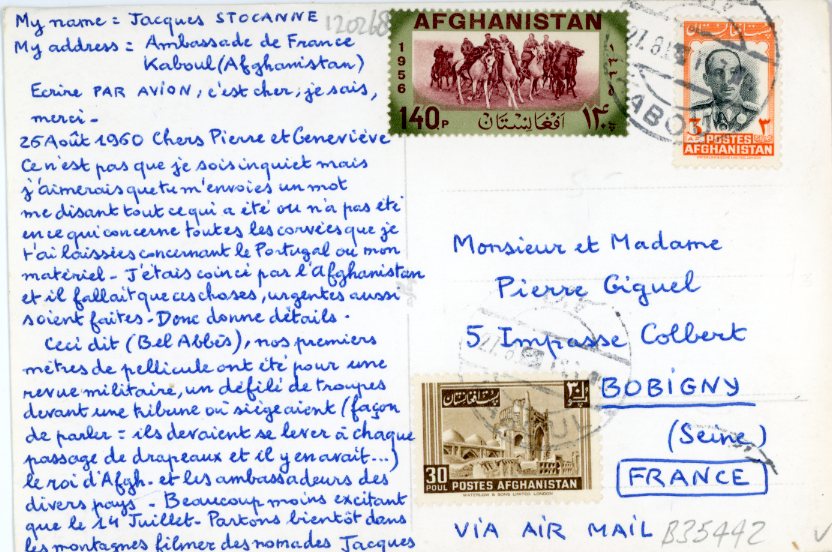 My name = Jacques STOCANNE
My address = Ambassade de France
Kaboul (Afghanistan)
Ecrire PAR AVION, c'est cher, je sais,
merci -
26 Août 1960 Chers Pierre et Geneviève
Ce n'est pas que je sois inquiet mais
j'aimerais que tu m'envoies un mot
me disant tout ce qui a été ou n'a pas été
en ce qui concerne toutes les corvées que je
t'ai laissées concernant le Portugal ou mon
matériel - J'étais coincé par l'Afghanistan
et il fallait que ces choses, urgentes aussi
soient faites - Donc donne détails .
Ceci dit (Bel Abbès), nos premiers
mètres de pellicule ont été pour une
revue militaire, un défilé de troupes
devant une tribune où siégeaient (façon
de parler = ils devaient se lever à chaque
passage de drapeaux et il y en avait...)
le roi d'Afgh. et les ambassadeurs des
divers pays - Beaucoup moins excitant
que le 14 Juillet - Partons bientôt dans
les montagnes filmer des nomades Jacques
120268
AFGHANISTAN
1956
140P
افغانستان
۱۴۰
KABOUL
۳
POSTES
AFGHANISTAN
Monsieur et Madame
Pierre Giguel
5 Impasse Colbert
BOBIGNY
(Seine)
FRANCE
۳۰
30
POUL
POSTES AFGHANISTAN
WATERLOW & SONS LIMITED, LONDON
VIA AIR MAIL
B35442